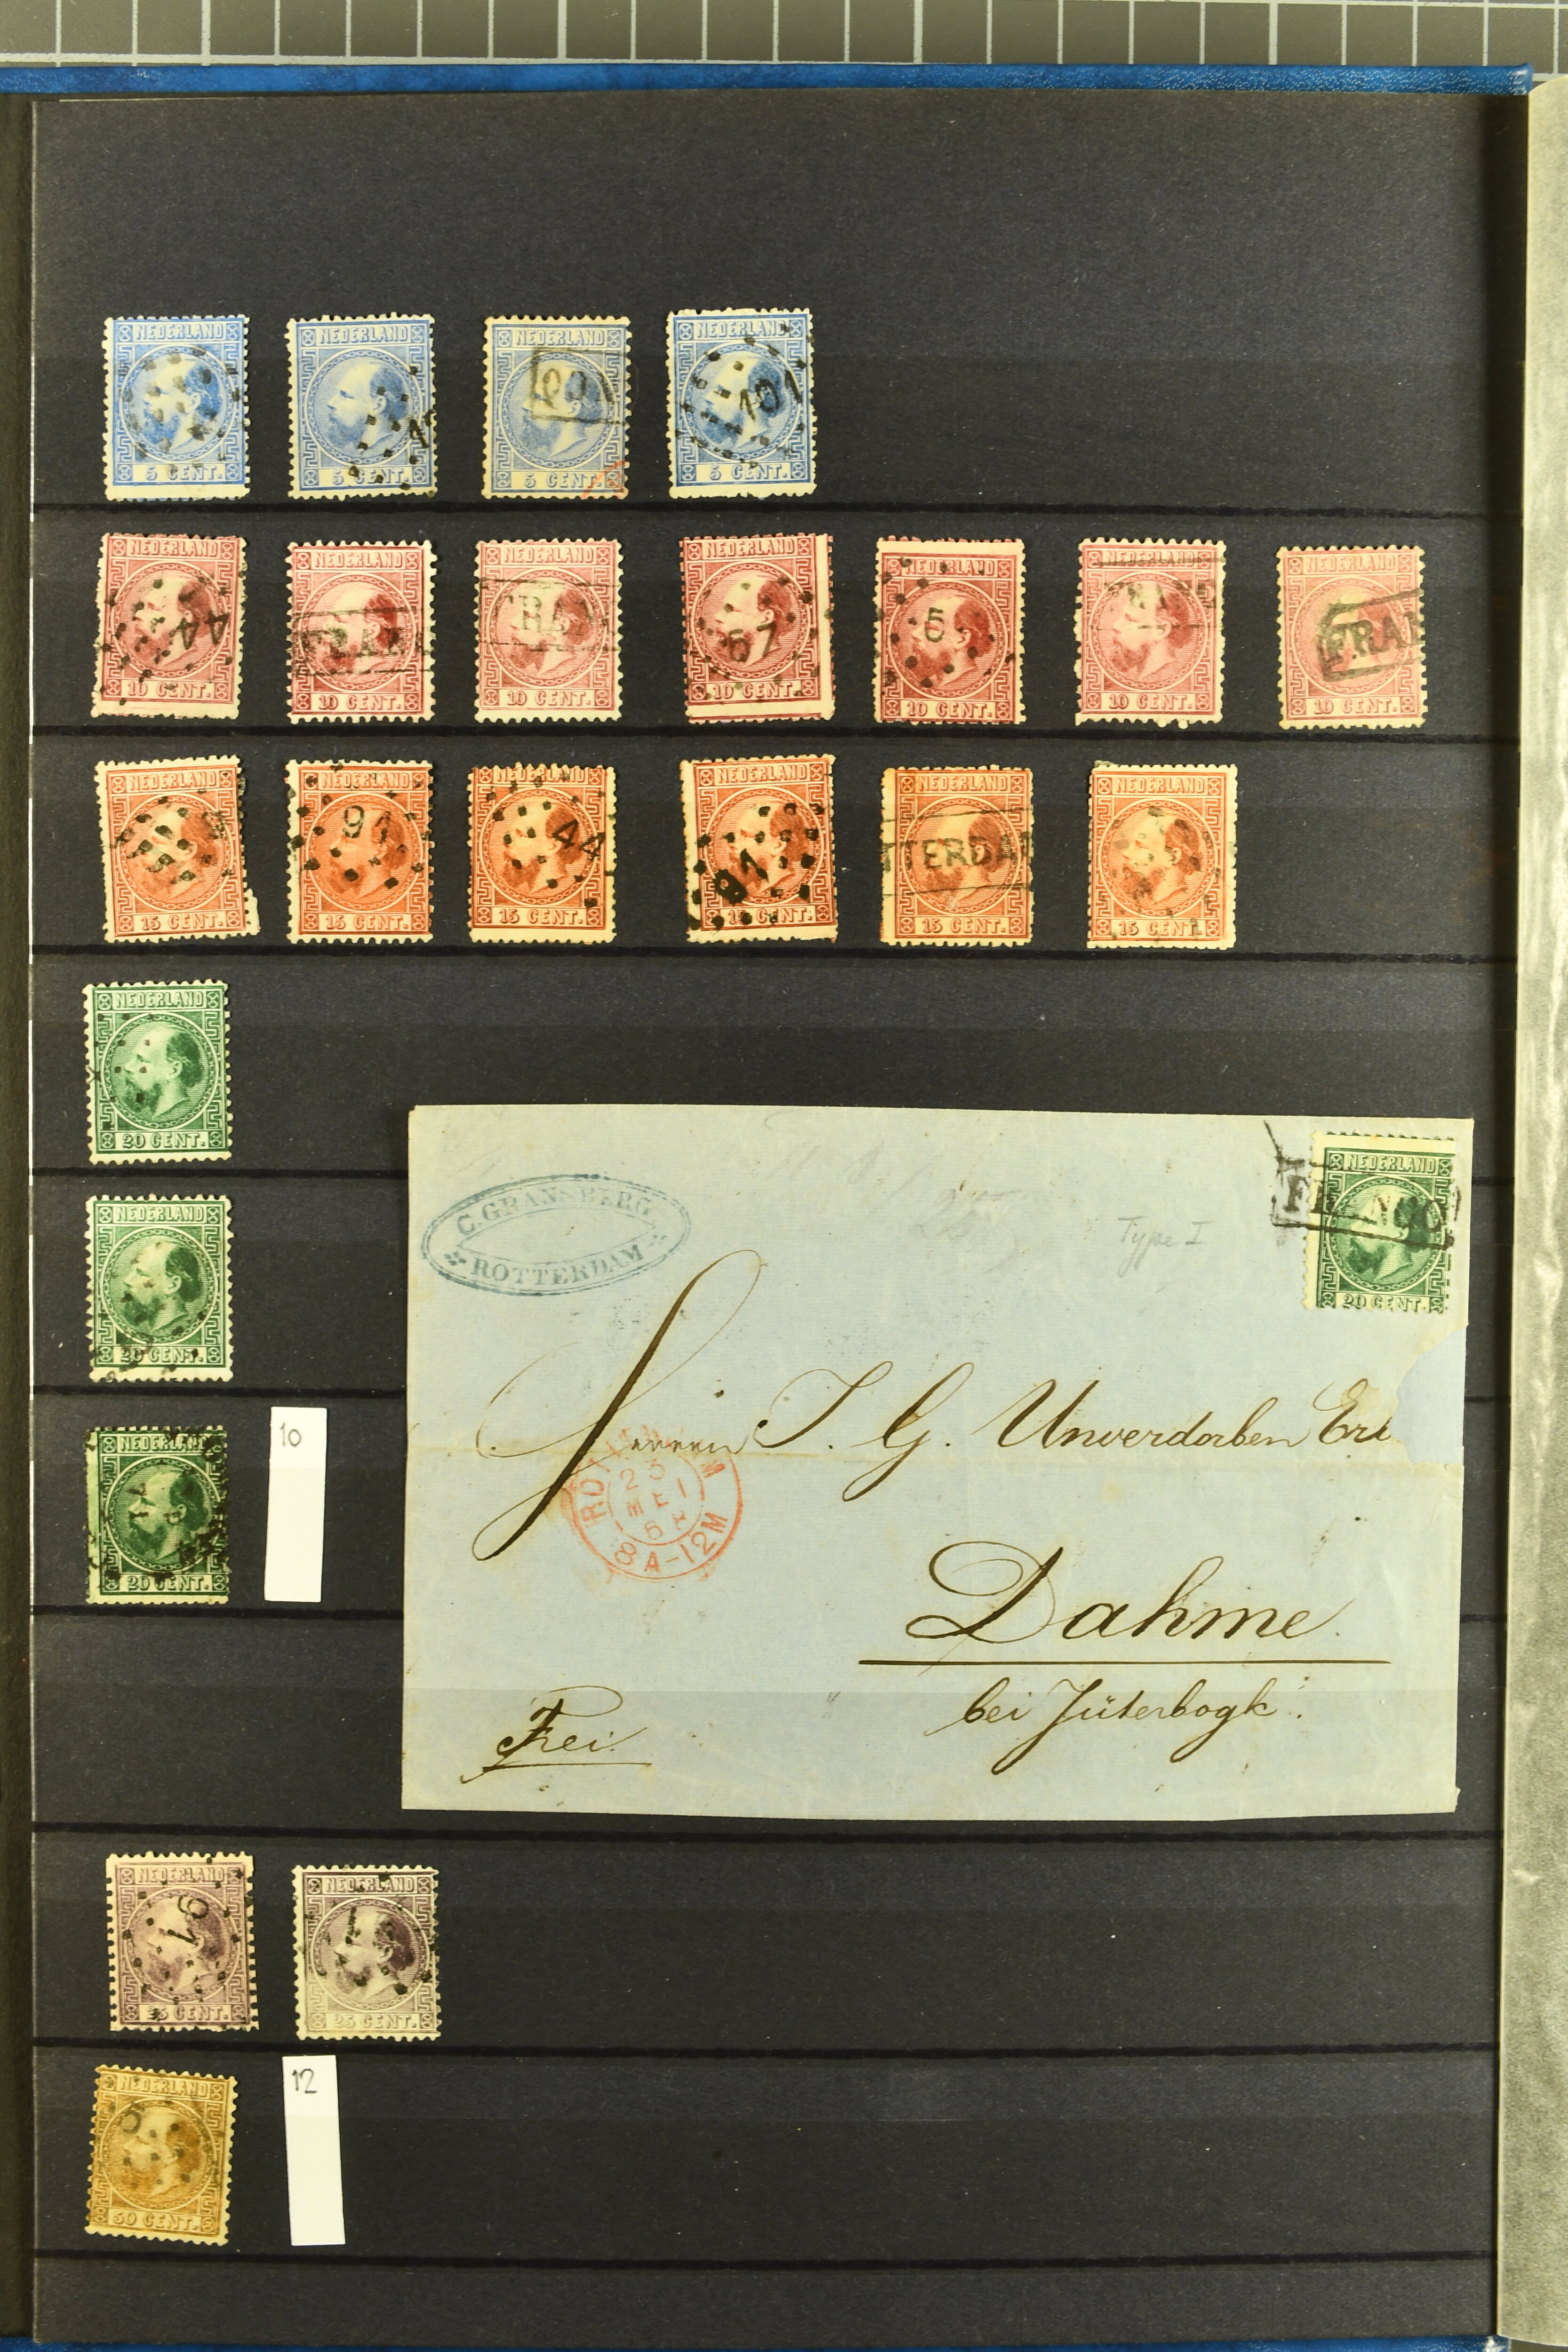 NEDERLAND
5 CENT.
NEDERLAND
5 CENT.
NEDERLAND
5 CENT.
NEDERLAND
101
5 CENT.
NEDERLAND
44
10 CENT.
NEDERLAND
FRANC
10 CENT.
NEDERLAND
FRA
10 CENT.
NEDERLAND
57
10 CENT.
NEDERLAND
5
10 CENT.
NEDERLAND
FRANC
10 CENT.
NEDERLAND
FRAN
10 CENT.
NEDERLAND
15 CENT.
NEDERLAND
91
15 CENT.
NEDERLAND
44
15 CENT.
NEDERLAND
91
15 CENT.
NEDERLAND
TTERDAM
15 CENT.
NEDERLAND
15 CENT.
NEDERLAND
20 CENT.
NEDERLAND
20 CENT.
NEDERLAND
20 CENT.
10
C. GRANSBERG.
ROTTERDAM
Type I
NEDERLAND
FRANCO
20 CENT.
Herren J. G. Unverdorben
ROTTERDAM
23
MEI
68
8A-12M
Dahme
bei Jüterbogk.
Frei.
NEDERLAND
91
25 CENT.
NEDERLAND
25 CENT.
NEDERLAND
50 CENT.
12